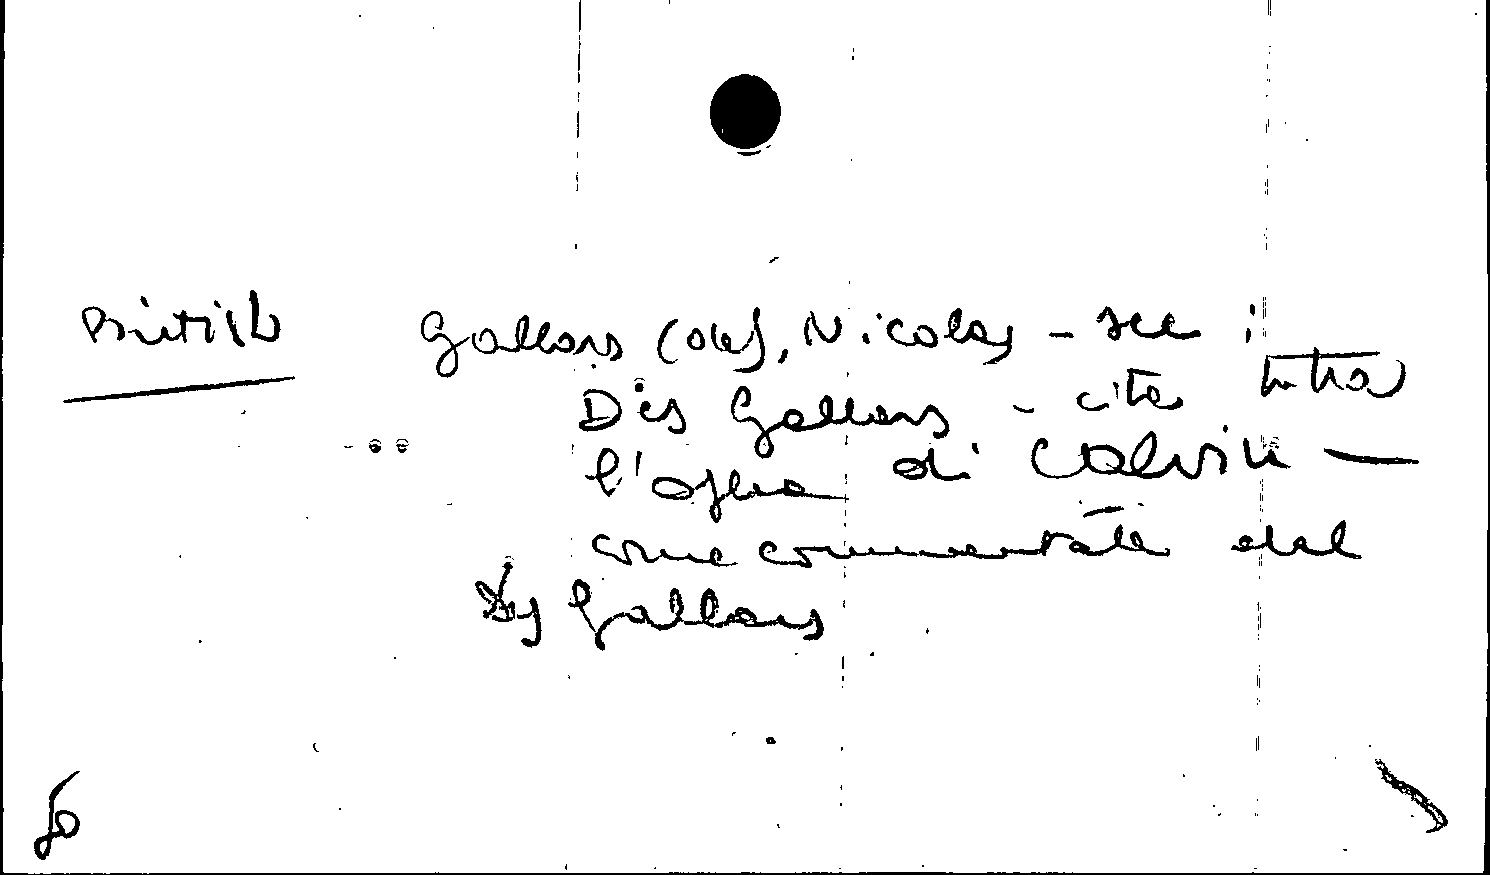 British Gallars (des), Nicolas - see :
Des Gallars - cita tutta
l'opera di Calvin —
come commentata dal
Des Gallars